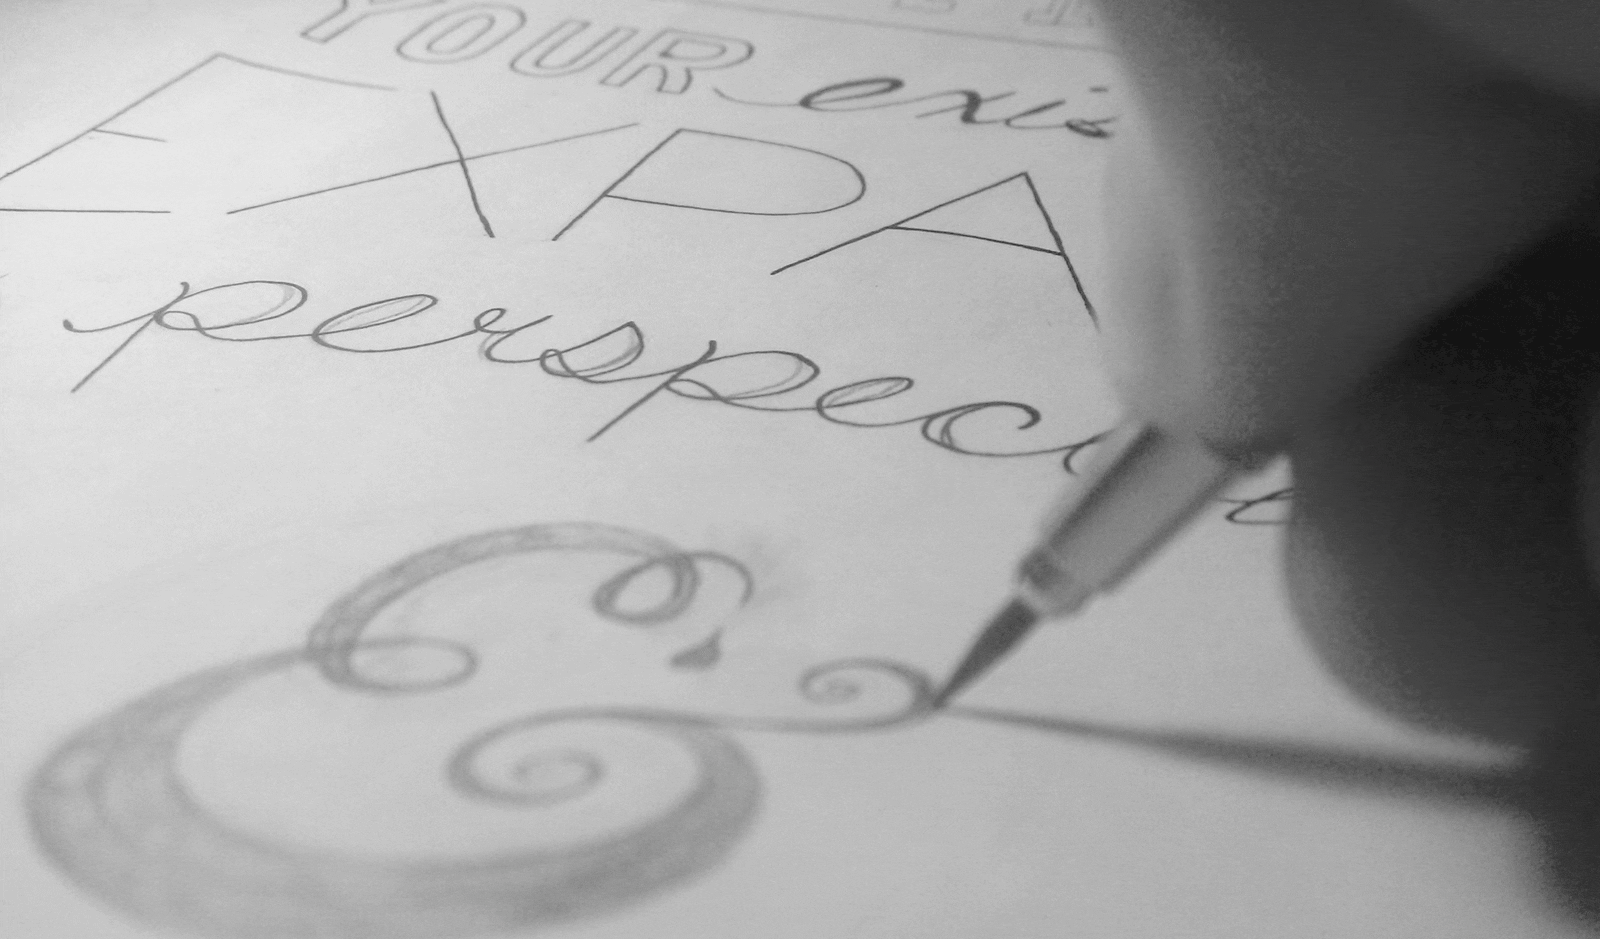 YOUR exis
EXPA
perspec
&